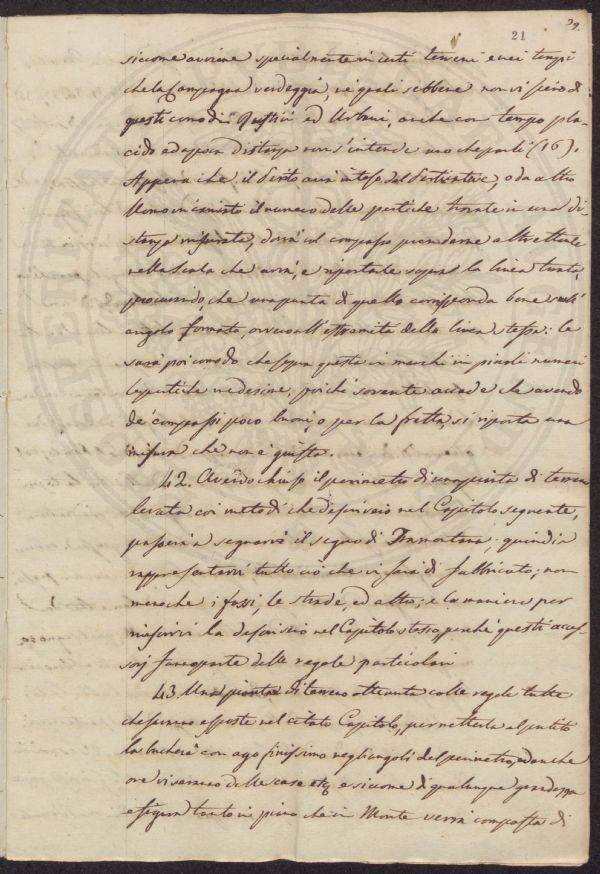 21
39.
siccome avviene specialmente in certi terreni e nei tempi
che la Campagna verdeggia, i quali sebbene non vi siero di
questi comodi Rustici ed Urbani, anche con tempo pla-
cido ed a poca distanza non s'intende uno che parli (16).
Appena che il Perito avrà inteso dal Pertichatore, o da altro
Uomo incaricato il numero delle pertiche trovate in una di-
stanza misurata, dovrà col compasso prenderne altrettante
nella Scala che avrà, e riportarle sopra la linea tirata,
procurando, che una punta di quello corrisponda bene nell'
angolo formato, ovvero all'estremità della linea stessa: le
sarà poi comodo che sopra questa ci marchi in piccoli numeri
le pertiche medesime, poichè sovente accade che avendo
de' compassi poco buoni, o per la fretta, si riporta una
misura che non è giusta.
42. Avendo chiuso il perimetro di una pianta di terreno
levata coi metodi che descriverò nel Capitolo seguente,
passerà a segnarvi il segno di Tramontana; quindi a
rappresentarvi tutto ciò che vi sarà di fabbricato; non
meno che i fossi, le strade, ed altro; e la maniera per
inserirvi la descriverò nel Capitolo stesso, perchè questi acces-
sorj fanno parte delle regole particolari
43. Una pianta di terreno attuata colle regole tutte
che furono esposte nel citato Capitolo, per metterla al pulito
la bucherà con ago finissimo negli angoli del perimetro, ed anche
ove vi saranno delle case etc. e siccome di qualunque grandezza
e figura tanto in piano che in Monte verrà composta di